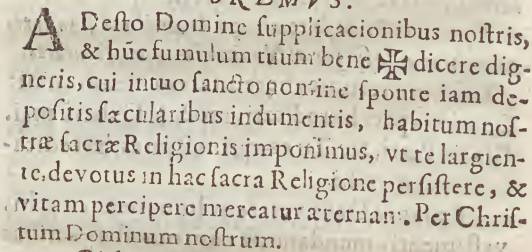 OREMVS.
ADesto Domine supplicacionibus nostris,
& hũc fumulum tuum bene ✠ dicere dig-
neris, cui intuo sancto nomine sponte iam de-
positis sæcularibus indumentis, habitum nos-
træ sacræ Religionis imponimus, vt te largien-
te, devotus in hac sacra Religione persistere, &
vitam percipere mereatur æternam. Per Chris-
tum Dominum nostrum.